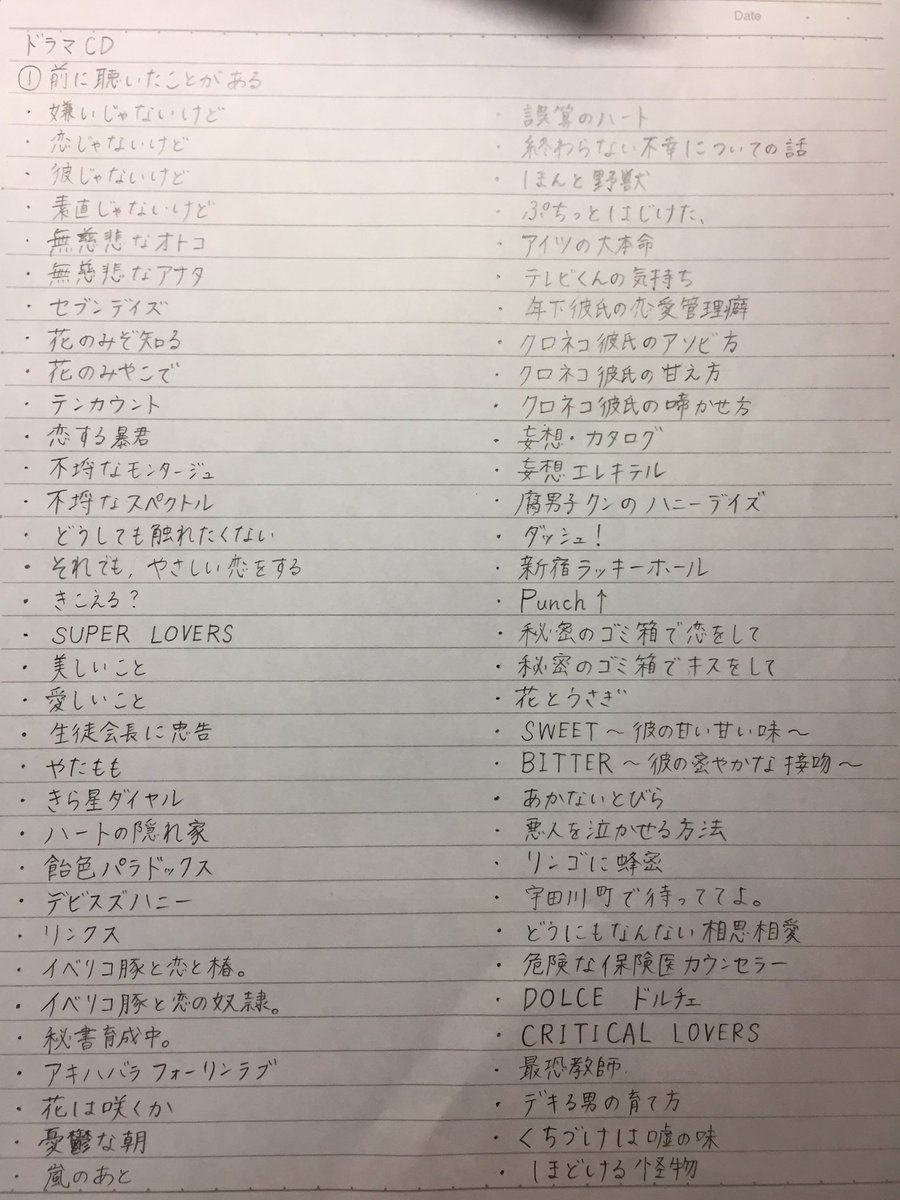 Date
ドラマCD
①前に聴いたことがある
・嫌いじゃないけど
・恋じゃないけど
・彼じゃないけど
・素直じゃないけど
・無慈悲なオトコ
・無慈悲なアナタ
・セブンデイズ
・花のみぞ知る
・花のみやこで
・テンカウント
・恋する暴君
・不埒なモンタージュ
・不埒なスペクトル
・どうしても触れたくない
・それでも、やさしい恋をする
・きこえる?
・SUPER LOVERS
・美しいこと
・愛しいこと
・生徒会長に忠告
・やたもも
・きら星ダイヤル
・ハートの隠れ家
・飴色パラドックス
・デビズズハニー
・リンクス
・イベリコ豚と恋と椿。
・イベリコ豚と恋の奴隷。
・秘書育成中。
・アキハバラフォーリンラブ
・花は咲くか
・憂鬱な朝
・嵐のあと
・誤算のハート
・終わらない不幸についての話
・ほんと野獣
・ぷちっとはじけた、
・アイツの大本命
・テレビくんの気持ち
・年下彼氏の恋愛管理癖
・クロネコ彼氏のアソビ方
・クロネコ彼氏の甘え方
・クロネコ彼氏の啼かせ方
・妄想・カタログ
・妄想エレキテル
・腐男子クンのハニーデイズ
・ダッシュ!
・新宿ラッキーホール
・Punch↑
・秘密のゴミ箱で恋をして
・秘密のゴミ箱でキスをして
・花とうさぎ
・SWEET～彼の甘い甘い味～
・BITTER～彼の密やかな接吻～
・あかないとびら
・悪人を泣かせる方法
・リンゴに蜂蜜
・宇田川町で待っててよ。
・どうにもなんない相思相愛
・危険な保険医カウンセラー
・DOLCE ドルチェ
・CRITICAL LOVERS
・最恐教師
・デキる男の育て方
・くちづけは嘘の味
・ほどける怪物